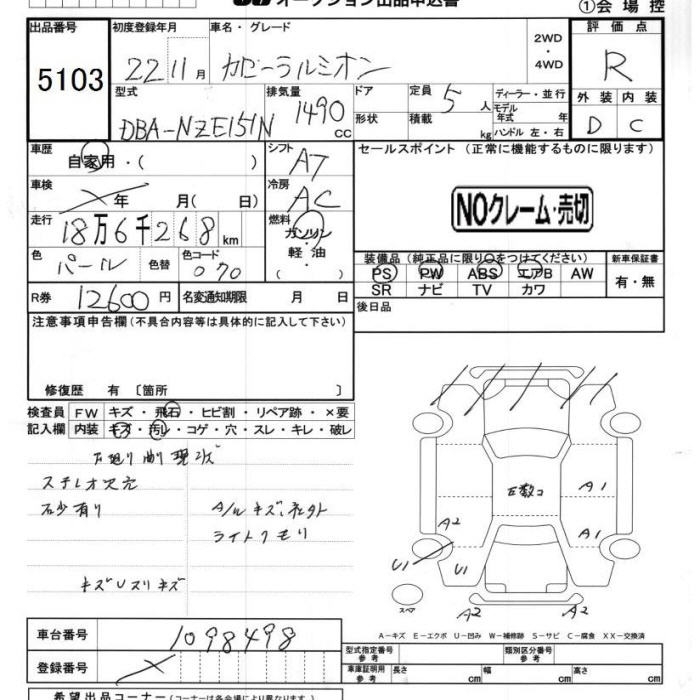 オークション出品申込書
①会場控
出品番号 初度登録年月 車名・グレード 評価点
5103 22 11月 カローラルミオン 2WD・4WD R
型式 排気量 ドア 定員 ディーラー・並行 外装 内装
DBA-NZE151N 1490 cc 5人 モデル年式 年 D C
形状 積載 kg ハンドル 左・右
車歴 シフト セールスポイント (正常に機能するものに限ります)
自家用・( ) AT
車検 冷房
年 月( 日) AC NOクレーム・売切
走行 燃料
18万6千268km ガソリン・軽油
色 色替 色コード 装備品(純正品に限り○をつけてください) 新車保証書
パール 070 PS PW ABS エアB AW 有・無
SR ナビ TV カワ
R券 12600円 名変通知期限 月 日 後日品
注意事項申告欄(不具合内容等は具体的に記入して下さい)
修復歴 有 〔箇所 〕
検査員 FW キズ・飛石・ヒビ割・リペア跡・×要
記入欄 内装 キズ・汚レ・コゲ・穴・スレ・キレ・破レ
ステレオ欠
石少有り A/Wキズ
ライトクモリ
キズUスリキズ
A2 A1
A1
U1 U1
スペア A2 A2
A-キズ E-エクボ U-凹み W-補修跡 S-サビ C-腐食 XX-交換済
車台番号 1098498
登録番号
型式指定番号 参考 類別区分番号 参考
車庫証明用 参考 長さ cm 幅 cm 高さ cm
希望出品コーナー(コーナーは各会場により異なります)